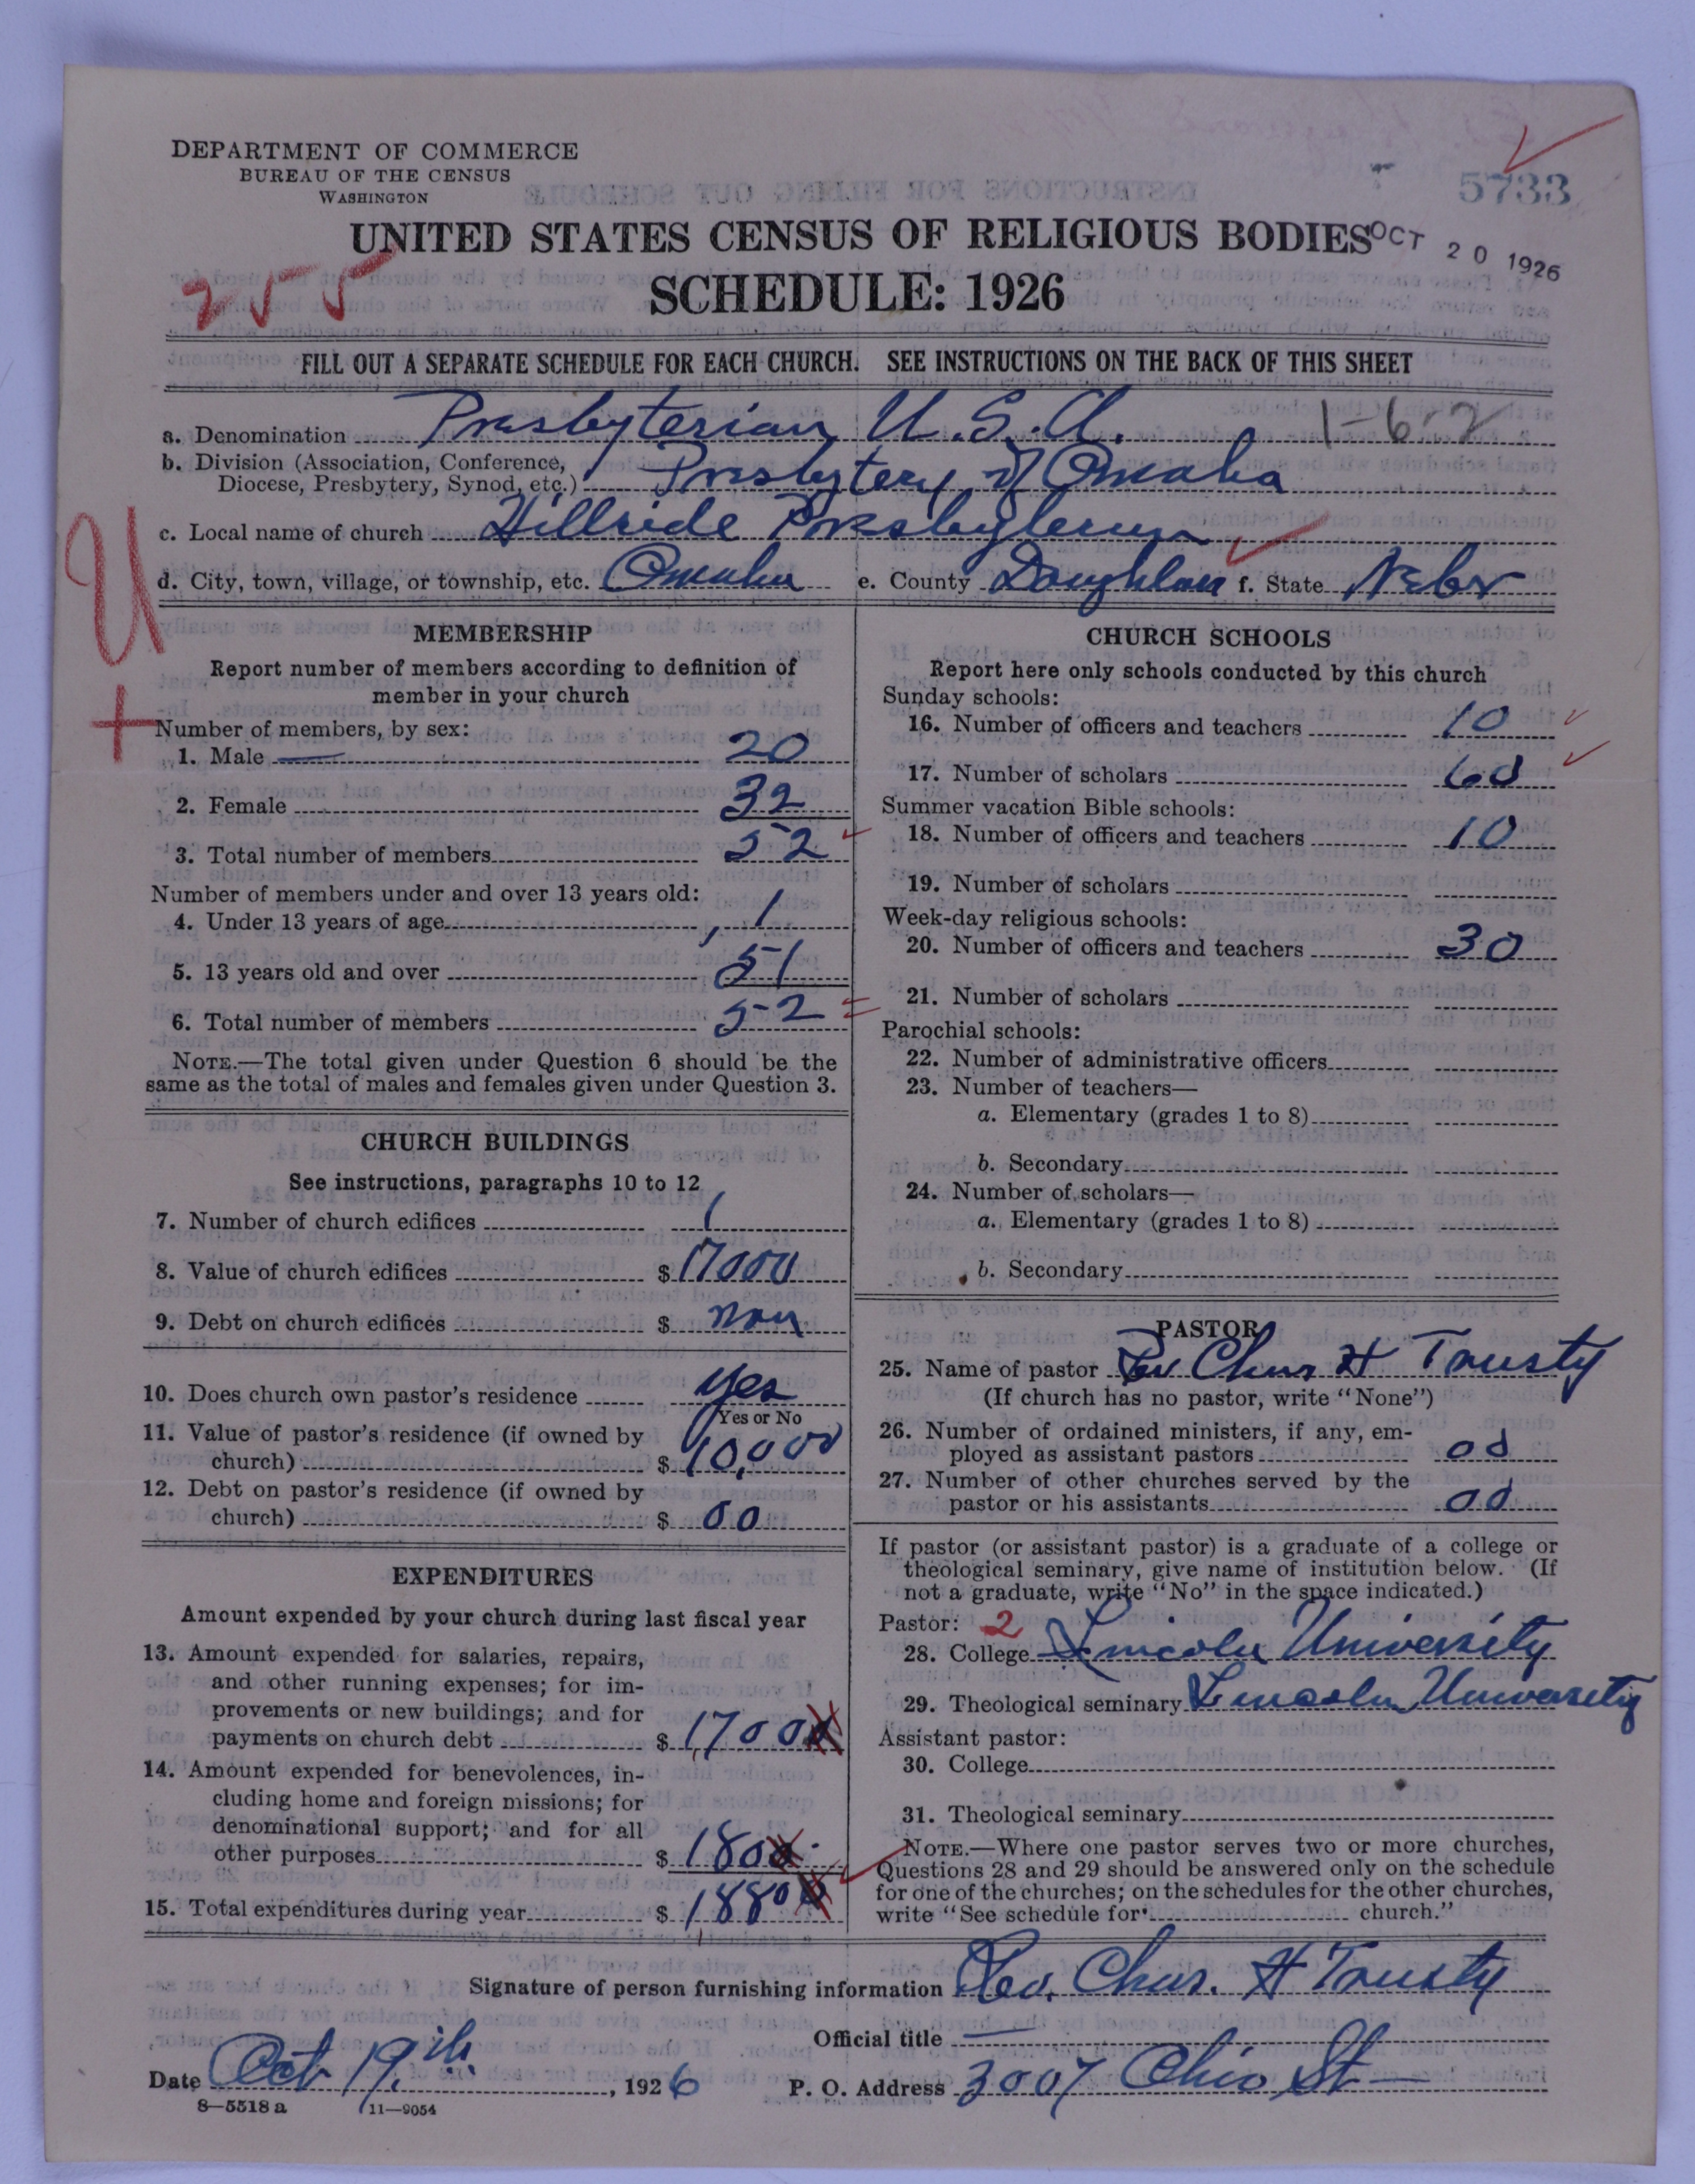 DEPARTMENT OF COMMERCE
BUREAU OF THE CENSUS
WASHINGTON
5733
UNITED STATES CENSUS OF RELIGIOUS BODIES
OCT 20 1926
255
SCHEDULE: 1926
FILL OUT A SEPARATE SCHEDULE FOR EACH CHURCH. SEE INSTRUCTIONS ON THE BACK OF THIS SHEET
a. Denomination Presbyterian U.S.A. 1-6-2
b. Division (Association, Conference,
Diocese, Presbytery, Synod, etc.) Presbytery of Omaha
c. Local name of church Hillside Presbyterian
d. City, town, village, or township, etc. Omaha e. County Doughlass f. State Nebr
U
+
MEMBERSHIP
Report number of members according to definition of
member in your church
Number of members, by sex:
1. Male 20
2. Female 32
3. Total number of members 52
Number of members under and over 13 years old:
4. Under 13 years of age 1
5. 13 years old and over 51
6. Total number of members 52
NOTE.—The total given under Question 6 should be the
same as the total of males and females given under Question 3.
CHURCH BUILDINGS
See instructions, paragraphs 10 to 12
7. Number of church edifices 1
8. Value of church edifices $ 17000
9. Debt on church edifices $ non
10. Does church own pastor's residence yes
Yes or No
11. Value of pastor's residence (if owned by
church) $ 10,000
12. Debt on pastor's residence (if owned by
church) $ 00
EXPENDITURES
Amount expended by your church during last fiscal year
13. Amount expended for salaries, repairs,
and other running expenses; for im-
provements or new buildings; and for
payments on church debt $ 1700
14. Amount expended for benevolences, in-
cluding home and foreign missions; for
denominational support; and for all
other purposes $ 180
15. Total expenditures during year $ 1880
CHURCH SCHOOLS
Report here only schools conducted by this church
Sunday schools:
16. Number of officers and teachers 10
17. Number of scholars 60
Summer vacation Bible schools:
18. Number of officers and teachers 10
19. Number of scholars
Week-day religious schools:
20. Number of officers and teachers 30
21. Number of scholars
Parochial schools:
22. Number of administrative officers
23. Number of teachers—
a. Elementary (grades 1 to 8)
b. Secondary
24. Number of scholars—
a. Elementary (grades 1 to 8)
b. Secondary
PASTOR
25. Name of pastor Rev Chas H Trusty
(If church has no pastor, write "None")
26. Number of ordained ministers, if any, em-
ployed as assistant pastors 00
27. Number of other churches served by the
pastor or his assistants 00
If pastor (or assistant pastor) is a graduate of a college or
theological seminary, give name of institution below. (If
not a graduate, write "No" in the space indicated.)
Pastor: 2
28. College Lincoln University
29. Theological seminary Lincoln University
Assistant pastor:
30. College
31. Theological seminary
NOTE.—Where one pastor serves two or more churches,
Questions 28 and 29 should be answered only on the schedule
for one of the churches; on the schedules for the other churches,
write "See schedule for church."
Signature of person furnishing information Rev. Chas. H Trusty
Official title —
Date Oct 19th, 1926 P. O. Address 3007 Ohio St
8—5518 a 11—9054